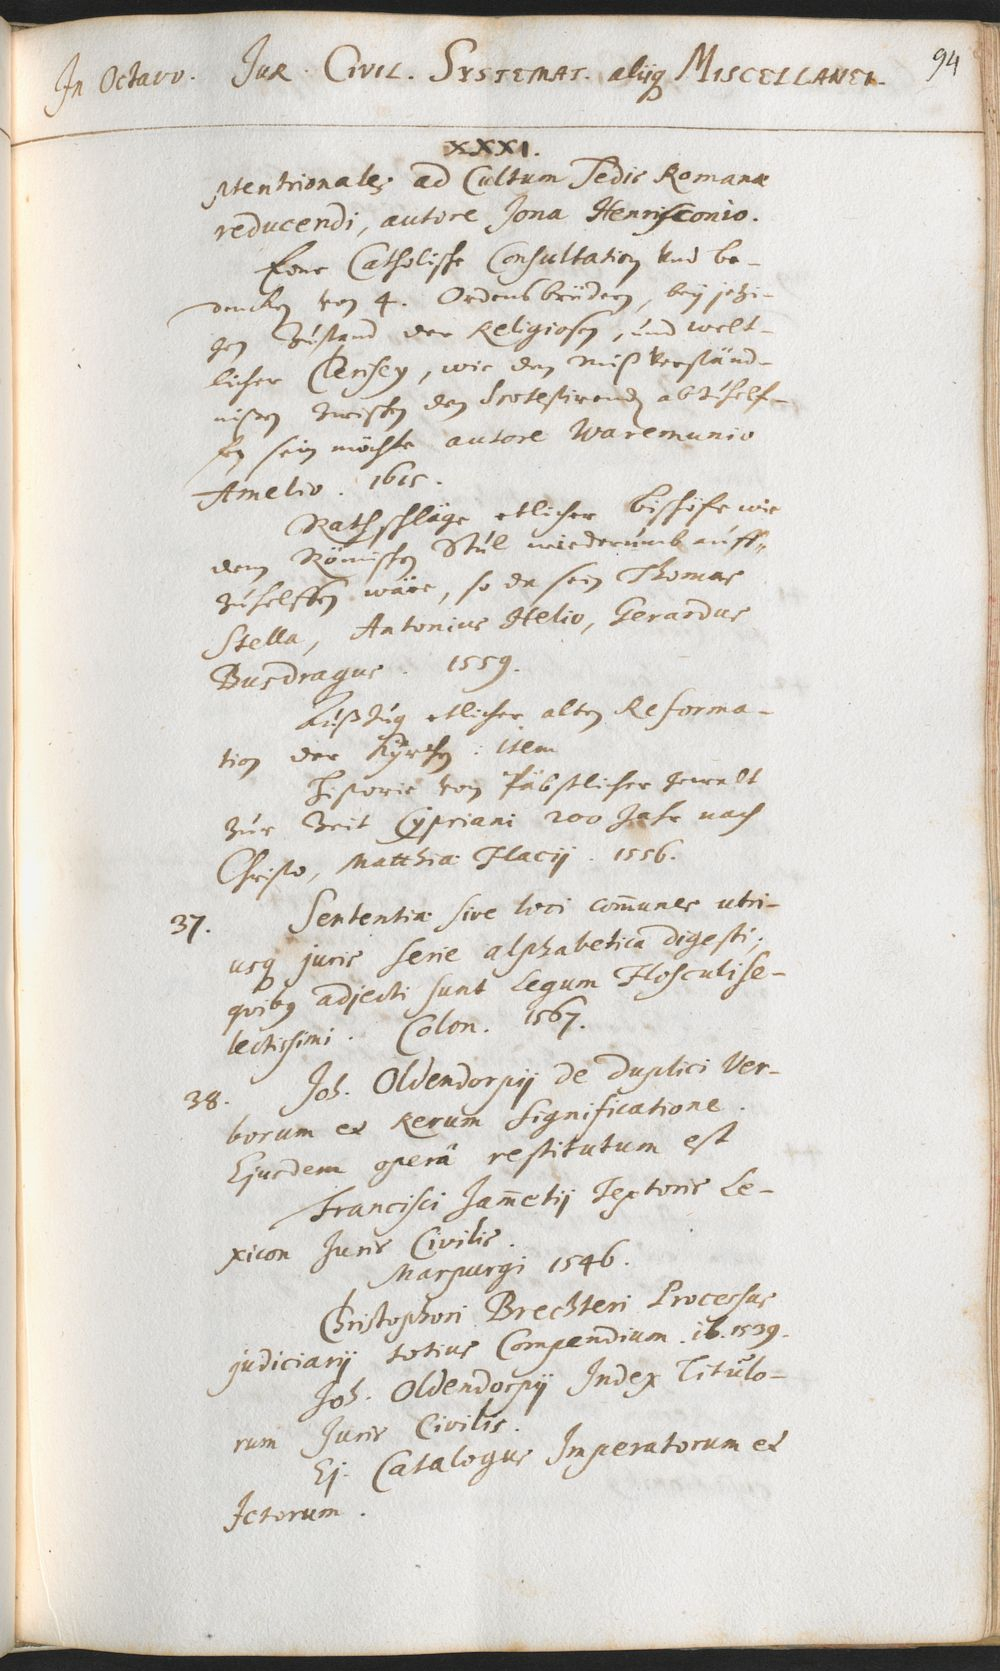 In Octavo. Jur. Civil. Systemat. aliiq Miscellanei. 94
XXXI.
ptentrionales ad Cultum Sedis Romanæ
reducendi, autore Jona Henrisconio.
Eine Catholische Consultation und be-
dencken von 4. Ordensbrüdern, bey jetzi-
gen Zustand der Religiosen, und welt-
licher Clerisey, wie den mißverständ-
nißen zwischen den Protestirenden abzuhelf-
fen sein möchte autore Waremunio
Amelio. 1615.
Rathschläge etlicher Bischöfe wie
dem Römischen Stul wiederumb auff-
zuhelffen wäre, so da sein Thomas
Stella, Antonius Helio, Gerardus
Busdragus. 1559.
Außzug etlicher alten Reforma-
tion der Kyrchen : item
Historie von Päbstlicher gewalt
zur Zeit Cypriani 200 Jahr nach
Christo, Matthiæ Flacij. 1556.
37. Sententiæ sive loci com̄unes utri-
usq juris serie alphabetica digesti,
quibq adjecti sunt Legum Flosculi se-
lectissimi. Colon. 1567.
38. Joh. Oldendorpij de duplici Ver-
borum et Rerum significatione.
Ejusdem operâ restitutum est
Francisci Jam̄etij Textoris Le-
xicon Juris Civilis.
Marpurgi 1546.
Christophori Brechteri Processus
judiciarij totius Compendium. ib. 1539.
Joh. Oldendorpij Index Titulo-
rum Juris Civilis.
Ej. Catalogus Imperatorum et
Jctorum.